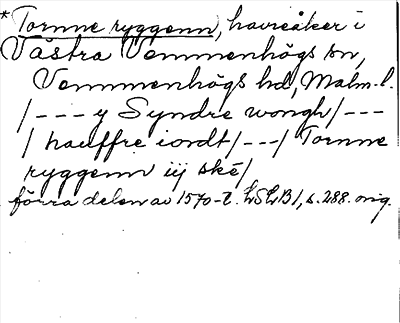 * Tornne ryggenn, havreåker i
Västra Vemmenhögs sn,
Vemmenhögs hd, Malm. l.
/---y Syndre wongh/---
/ hauffre iordt/---/ Tornne
ryggenn iij ske/
förra delen av 1570-t. LSLB1, s. 288. orig.